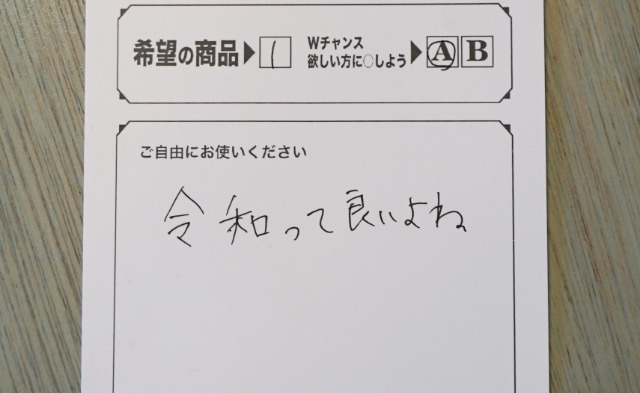 希望の商品▶ 1 Wチャンス
欲しい方に○しよう▶ A B
ご自由にお使いください
令和って良いよね